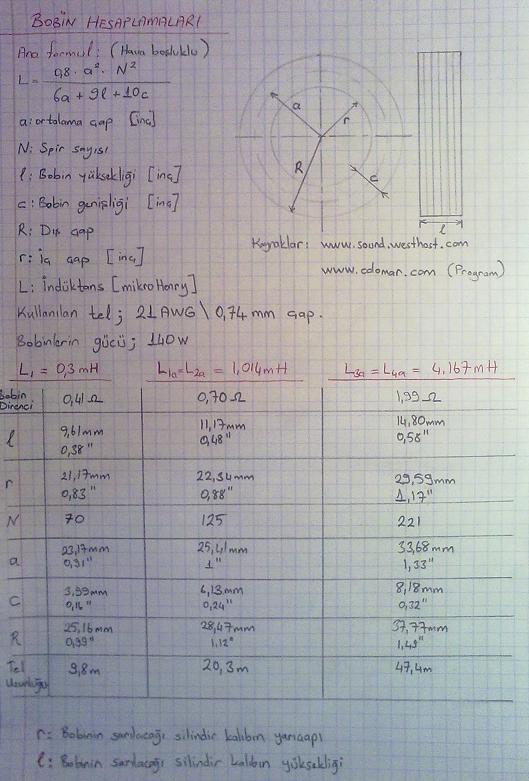 BOBİN HESAPLAMALARI
Ana formul: (Hava boşluklu)
L = 0,8 · a² · N²
6a + 9l + 10c
a: ortalama çap [inç]
N: Spir sayısı
l: Bobin yüksekliği [inç]
c: Bobin genişliği [inç]
R: Dış çap
r: iç çap [inç]
L: İndüktans [mikroHenry]
a
r
R
c
l
Kaynaklar: www.sound.westhost.com
www.colomar.com (Program)
Kullanılan tel; 21 AWG \ 0,74 mm çap.
Bobinlerin gücü; 140W
L₁ = 0,3 mH L₁ₐ=L₂ₐ = 1,014mH L₃ₐ = L₄ₐ = 4,167 mH
Bobin Direnci 0,41 Ω 0,70 Ω 1,99 Ω
l 9,61mm 11,17mm 14,80mm
0,38" 0,48" 0,58"
r 21,17mm 22,34mm 29,59mm
0,83" 0,88" 1,17"
N 70 125 221
a 23,17mm 25,41mm 33,68mm
0,91" 1" 1,33"
c 3,99mm 6,13mm 8,18mm
0,16" 0,24" 0,32"
R 25,16mm 28,47mm 37,77mm
0,99" 1,12" 1,49"
Tel Uzunluğu 9,8m 20,3m 47,4m
r: Bobinin sarılacağı silindir kalıbın yarıçapı
l: Bobinin sarılacağı silindir kalıbın yüksekliği